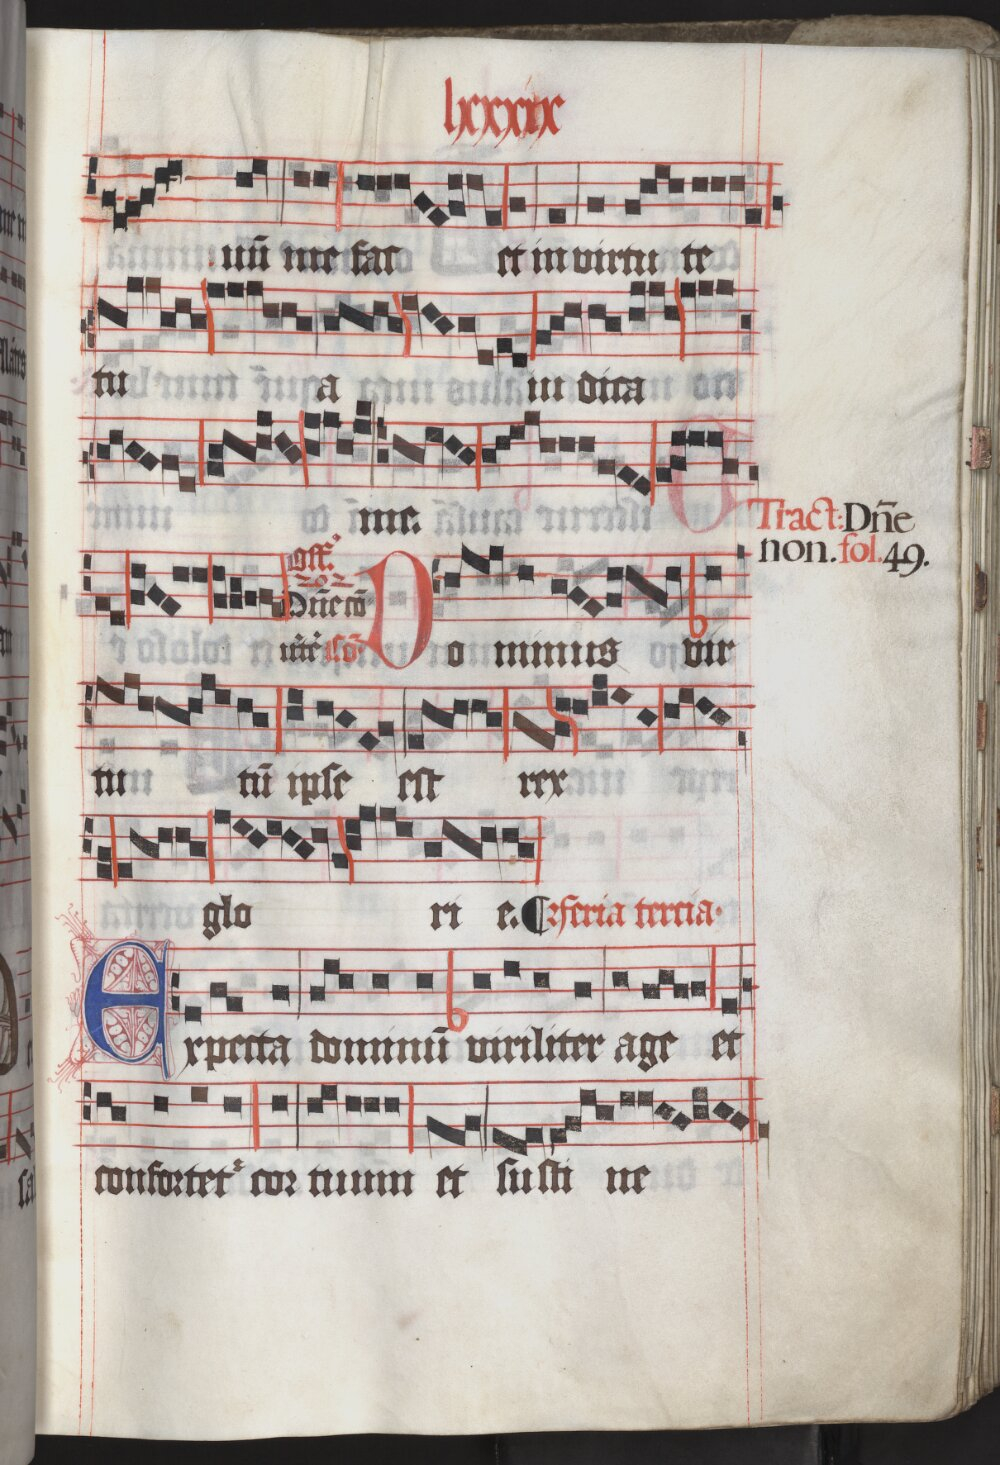 lxxxix
uū me fac et in virtu te
tu a iu dica
me.
Tract: Dn̄e
non. fol. 49.
Off.
Dn̄e cō
Cō
D o minus vir
tu tū ipse est rex
glo ri e. feria tercia.
Expecta dominū viriliter age et
confortet᷑ cor tuum et susti ne